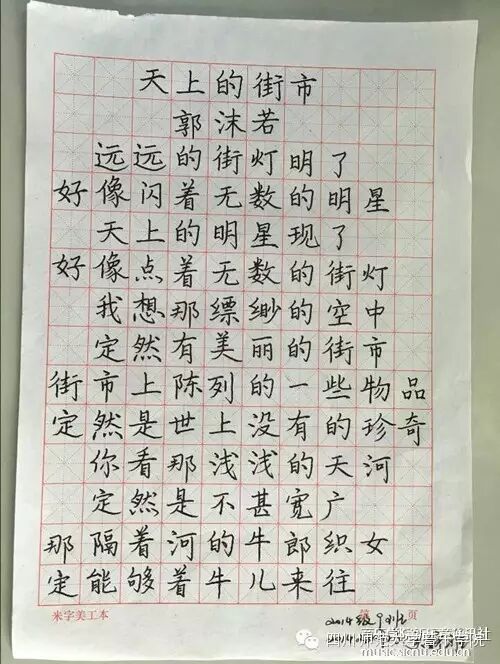 天上的街市
郭沫若
远远的街灯明了
好像闪着无数的明星
天上的明星现了
好像点着无数的街灯
我想那缥缈的空中
定然有美丽的街市
街市上陈列的一些物品
定然是世上没有的珍奇
你看那浅浅的天河
定然是不甚宽广
那隔着河的牛郎织女
定能够着牛儿来往
米字美工本
第 页
2014级9班
music.sicnu.edu.cn